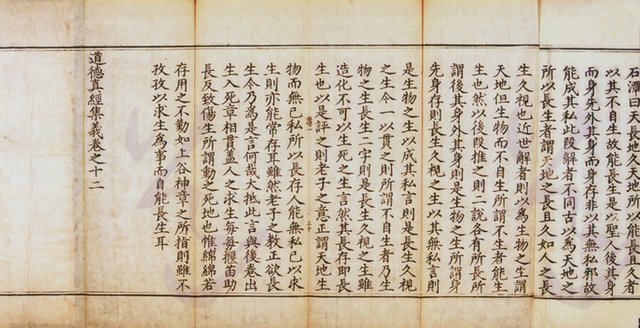 石潭曰天長地久天地所以能長且久者
以其不自生故能長生是以聖人後其身
而身先外其身而身存非以其無私邪故
能成其私此段解者不同古以為天地之
所以長生者謂天地之長且久如人之長
生久視也近世解者則以為生物之生謂
天地但生物而不自生所謂不生者能生
生也然以後段推之則二說各有所長所
謂後其身外其身則是生物之生所謂身
先身存則長生久視之生以其無私言則
是生物之生以成其私言則是長生久視
之生今一以貫之則所謂不自生者乃生
物之生長生二字則是長生久視之生雖
造化不可以生死之生言然其長存即長
生也以是評之則老子之意正謂天地生
物而無已私所以長存人能無私已以求
生則亦能常存耳雖然老子之教正欲長
生今乃為是言何哉大抵此言與後卷出
生入死章相貫蓋人之求生每每揠苗助
長反致傷生所謂動之死地也惟綿綿若
存用之不勤如上谷神章之所指則雖不
孜孜以求生為事而自能長生耳
道德真經集義卷之十二